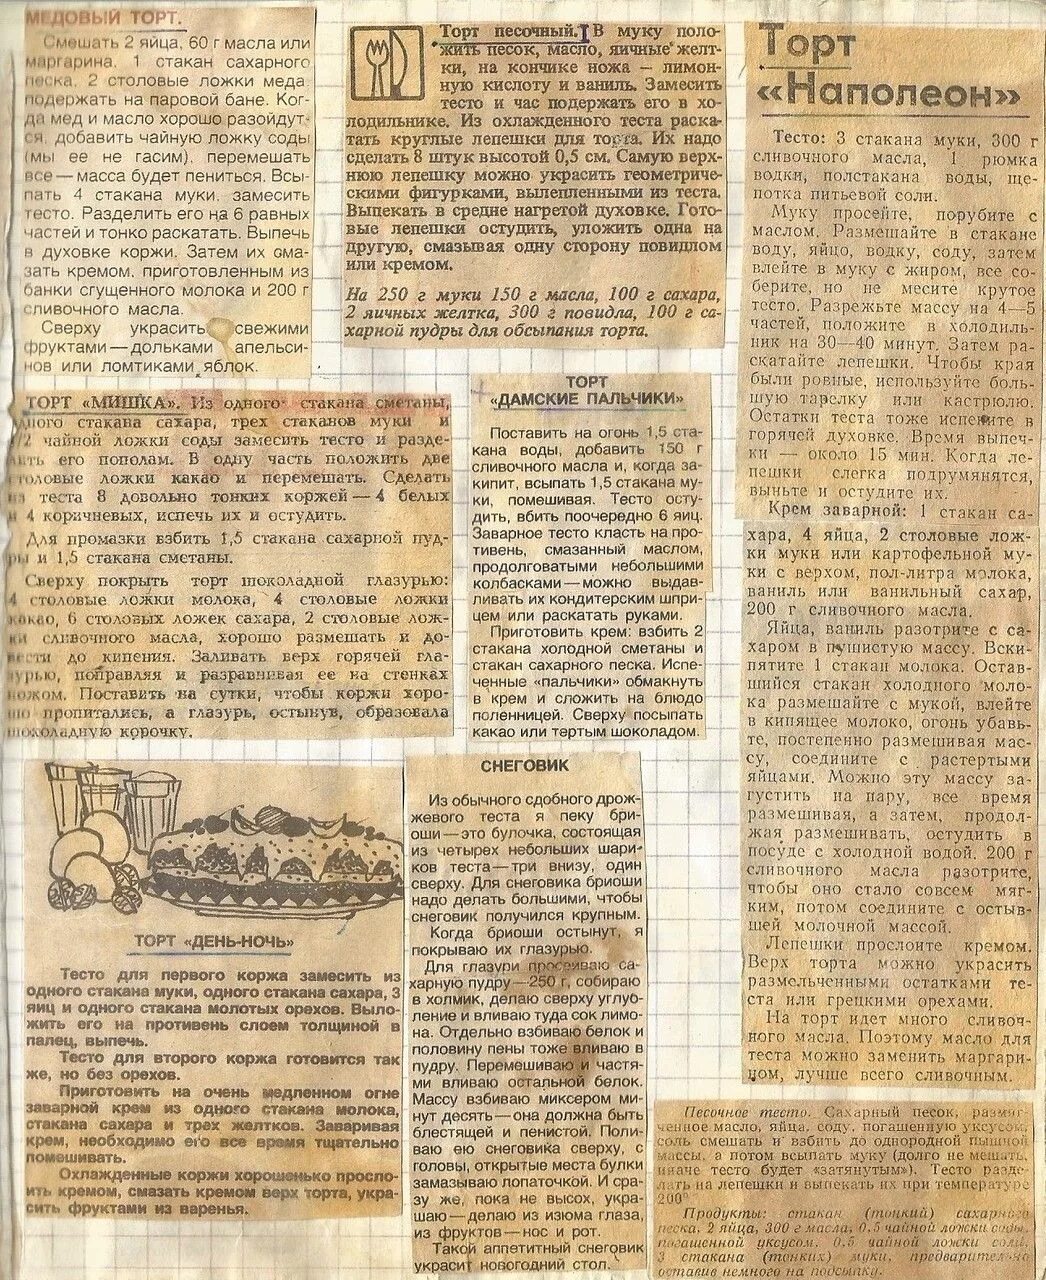 МЕДОВЫЙ ТОРТ.
Смешать 2 яйца, 60 г масла или
маргарина. 1 стакан сахарного
песка. 2 столовые ложки меда
подержать на паровой бане. Ког-
да мед и масло хорошо разойдут-
ся, добавить чайную ложку соды
(мы ее не гасим), перемешать
все — масса будет пениться. Всы-
пать 4 стакана муки. замесить
тесто. Разделить его на 6 равных
частей и тонко раскатать. Выпечь
в духовке коржи. Затем их сма-
зать кремом, приготовленным из
банки сгущенного молока и 200 г
сливочного масла.
Сверху украсить свежими
фруктами — дольками апельси-
нов или ломтиками яблок.
Торт песочный. В муку поло-
жить песок, масло, яичные желт-
ки, на кончике ножа — лимон-
ную кислоту и ваниль. Замесить
тесто и час подержать его в хо-
лодильнике. Из охлажденного теста раска-
тать круглые лепешки для торта. Их надо
сделать 8 штук высотой 0,5 см. Самую верх-
нюю лепешку можно украсить геометриче-
скими фигурками, вылепленными из теста.
Выпекать в средне нагретой духовке. Гото-
вые лепешки остудить, уложить одна на
другую, смазывая одну сторону повидлом
или кремом.
На 250 г муки 150 г масла, 100 г сахара,
2 яичных желтка, 300 г повидла, 100 г са-
харной пудры для обсыпания торта.
Торт
«Наполеон»
Тесто: 3 стакана муки, 300 г
сливочного масла, 1 рюмка
водки, полстакана воды, ще-
потка питьевой соли.
Муку просейте, порубите с
маслом. Размешайте в стакане
воду, яйцо, водку, соду, затем
влейте в муку с жиром, все со-
берите, но не месите крутое
тесто. Разрежьте массу на 4—5
частей, положите в холодиль-
ник на 30—40 минут. Затем ра-
скатайте лепешки. Чтобы края
были ровные, используйте боль-
шую тарелку или кастрюлю.
Остатки теста тоже испеките в
горячей духовке. Время выпеч-
ки — около 15 мин. Когда ле-
пешки слегка подрумянятся,
выньте и остудите их.
Крем заварной: 1 стакан са-
хара, 4 яйца, 2 столовые лож-
ки муки или картофельной му-
ки с верхом, пол-литра молока,
ваниль или ванильный сахар,
200 г сливочного масла.
Яйца, ваниль разотрите с са-
харом в пушистую массу. Вски-
пятите 1 стакан молока. Остав-
шийся стакан холодного моло-
ка размешайте с мукой, влейте
в кипящее молоко, огонь убавь-
те, постепенно размешивая мас-
су, соедините с растертыми
яйцами. Можно эту массу за-
густить на пару, все время
размешивая, а затем, продол-
жая размешивать, остудить в
посуде с холодной водой. 200 г
сливочного масла разотрите,
чтобы оно стало совсем мяг-
ким, потом соедините с остыв-
шей молочной массой.
Лепешки прослоите кремом.
Верх торта можно украсить
размельченными остатками те-
ста или грецкими орехами.
На торт идет много сливоч-
ного масла. Поэтому масло для
теста можно заменить маргари-
ном, лучше всего сливочным.
ТОРТ «МИШКА». Из одного стакана сметаны,
одного стакана сахара, трех стаканов муки и
1/2 чайной ложки соды замесить тесто и разде-
лить его пополам. В одну часть положить две
столовые ложки какао и перемешать. Сделать
из теста 8 довольно тонких коржей — 4 белых
и 4 коричневых, испечь их и остудить.
Для промазки взбить 1,5 стакана сахарной пуд-
ры и 1,5 стакана сметаны.
Сверху покрыть торт шоколадной глазурью:
4 столовые ложки молока, 4 столовые ложки
какао, 6 столовых ложек сахара, 2 столовые лож-
ки сливочного масла, хорошо размешать и до-
вести до кипения. Заливать верх горячей гла-
зурью, поправляя и разравнивая ее на стенках
ножом. Поставить на сутки, чтобы коржи хоро-
шо пропитались, а глазурь, остынув, образовала
шоколадную корочку.
ТОРТ
«ДАМСКИЕ ПАЛЬЧИКИ»
Поставить на огонь 1,5 ста-
кана воды, добавить 150 г
сливочного масла и, когда за-
кипит, всыпать 1,5 стакана му-
ки, помешивая. Тесто осту-
дить, вбить поочередно 6 яиц.
Заварное тесто класть на про-
тивень, смазанный маслом,
продолговатыми небольшими
колбасками — можно выдав-
ливать их кондитерским шпри-
цем или раскатать руками.
Приготовить крем: взбить 2
стакана холодной сметаны и
стакан сахарного песка. Испе-
ченные «пальчики» обмакнуть
в крем и сложить на блюдо
поленницей. Сверху посыпать
какао или тертым шоколадом.
ТОРТ «ДЕНЬ-НОЧЬ»
Тесто для первого коржа замесить из
одного стакана муки, одного стакана сахара, 3
яиц и одного стакана молотых орехов. Выло-
жить его на противень слоем толщиной в
палец, выпечь.
Тесто для второго коржа готовится так
же, но без орехов.
Приготовить на очень медленном огне
заварной крем из одного стакана молока,
стакана сахара и трех желтков. Заваривая
крем, необходимо его все время тщательно
помешивать.
Охлажденные коржи хорошенько просло-
ить кремом, смазать кремом верх торта, укра-
сить фруктами из варенья.
СНЕГОВИК
Из обычного сдобного дрож-
жевого теста я пеку бри-
оши — это булочка, состоящая
из четырех небольших шари-
ков теста — три внизу, один
сверху. Для снеговика бриоши
надо делать большими, чтобы
снеговик получился крупным.
Когда бриоши остынут, я
покрываю их глазурью.
Для глазури просеиваю са-
харную пудру — 250 г, собираю
в холмик, делаю сверху углуб-
ление и вливаю туда сок лимо-
на. Отдельно взбиваю белок и
половину пены тоже вливаю в
пудру. Перемешиваю и частя-
ми вливаю остальной белок.
Массу взбиваю миксером ми-
нут десять — она должна быть
блестящей и пенистой. Поли-
ваю ею снеговика сверху, с
головы, открытые места булки
замазываю лопаточкой. И сра-
зу же, пока не высох, укра-
шаю — делаю из изюма глаза,
из фруктов — нос и рот.
Такой аппетитный снеговик
украсит новогодний стол.
Песочное тесто. Сахарный песок, размяг-
ченное масло, яйца, соду, погашенную уксусом,
соль смешать и взбить до однородной пышной
массы, а потом всыпать муку (долго не мешать,
иначе тесто будет «затянутым»). Тесто разде-
лать на лепешки и выпекать их при температуре
200°
Продукты: стакан (тонкий) сахарного
песка, 2 яйца, 300 г масла, 0,5 чайной ложки соды,
погашенной уксусом, 0,5 чайной ложки соли,
3 стакана (тонких) муки, предварительно
оставив немного на подсыпку.